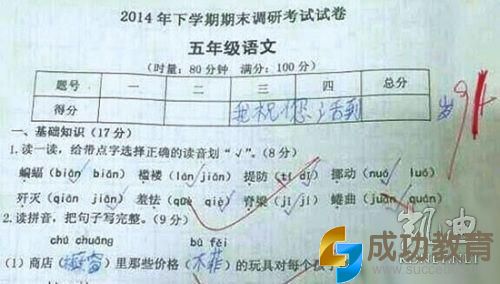 2014年下学期期末调研考试试卷
五年级语文
(时量：80分钟 满分：100分)
题号 一 二 三 四 总分
得分 我祝您活到 91 岁
一、基础知识(17分)
1.读一读，给带点字选择正确的读音划“√”。(8分)
蝙蝠(biān biǎn) 褴褛(lán jiān) 提防(tí dī) 挪动(nuó luó)
歼灭(qiān jiān) 羞怯(què qiè) 脊梁(jǐ jí) 蜷曲(juǎn quán)
2.读拼音，把句子写完整。(9分)
chú chuāng bù fěi
(1)商店(橱窗)里那些价格(不菲)的玩具对每个孩子
凯迪
KDNET.NET
成功教育